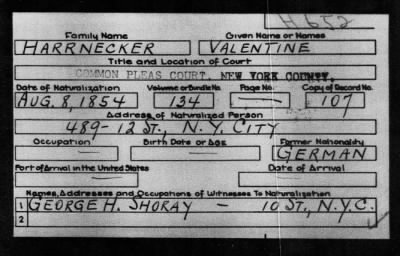 H652
Family Name Given Name or Names
HARRNECKER VALENTINE
Title and Location of Court
COMMON PLEAS COURT, NEW YORK COUNTY.
Date of Naturalization Volume or Bundle No. Page No. Copy of Record No.
AUG. 8, 1854 134 — 107
Address of Naturalized Person
489-12 ST., N.Y. CITY
Occupation Birth Date or Age Former Nationality
— — GERMAN
Port of Arrival in the United States Date of Arrival
— —
Names, Addresses and Occupations of Witnesses To Naturalization
1 GEORGE H. SHORAY — 10 ST., N.Y.C.
2